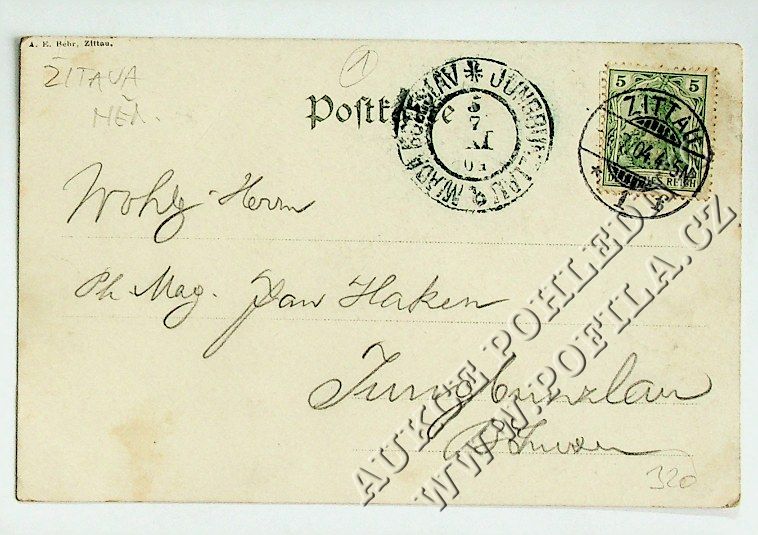 A. E. Behr, Zittau.
ŽITAVA
NĚM.
1
Postkarte
MLADÁ BOLESLAV * JUNGBUNZLAU
5
7
XI
04
5 5
DEUTSCHES REICH
ZITTAU
04. 4-5N
* 1 b
Wohlg Herrn
Ph. Mag. Jan Haken
Jungbunzlau
Böhmen
320
AUKCE POHLEDŮ
WWW.POFILA.CZ